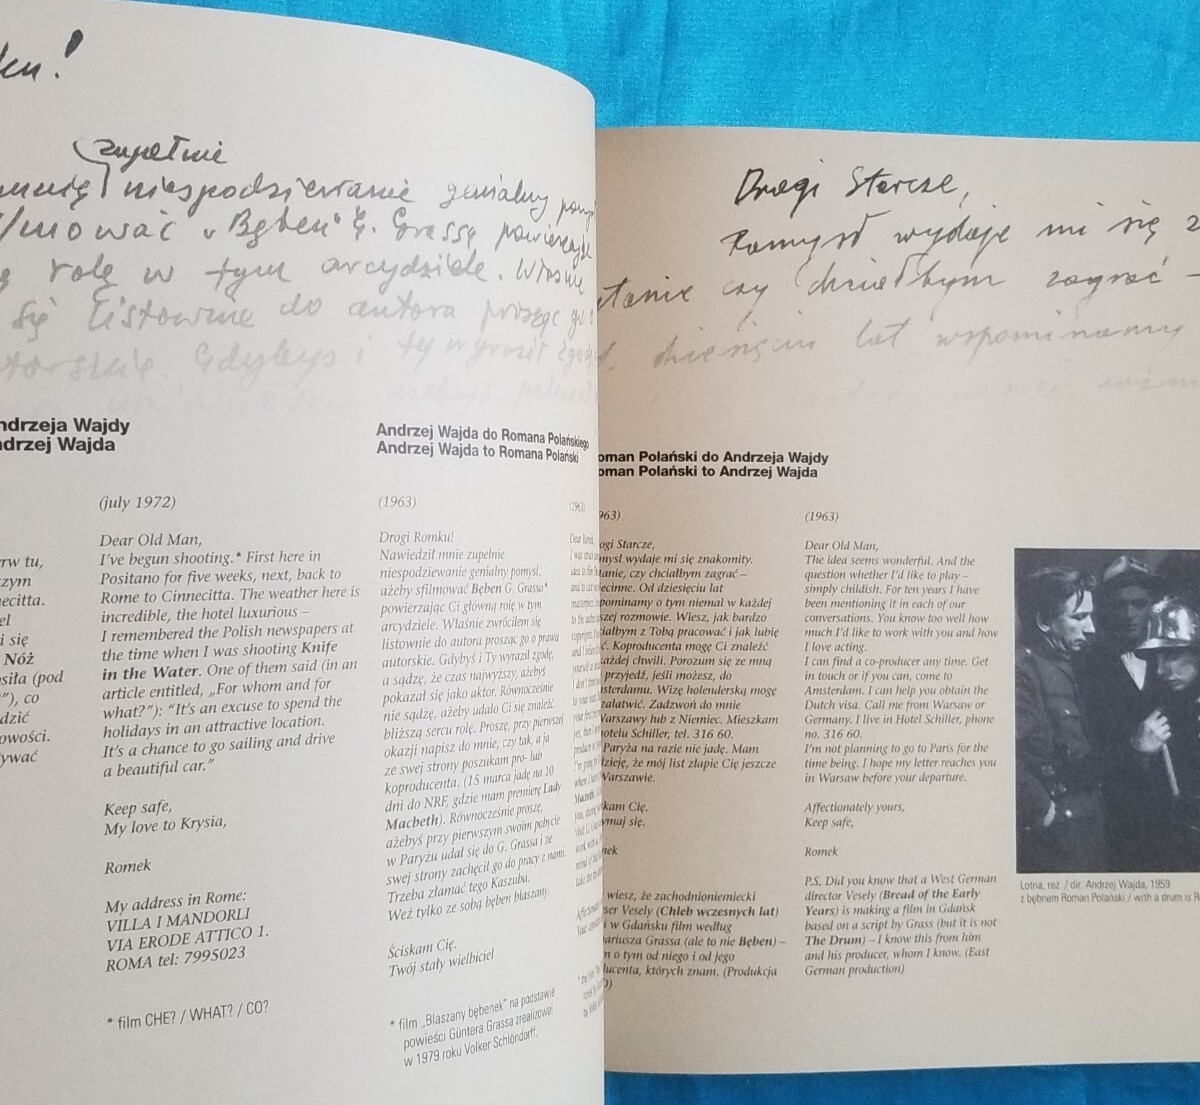 zupełnie
niespodziewanie genialny
"Bęben" G. Grassa
rolę w tym arcydziele. Właśnie
się listownie do autora prosząc go
Gdybyś i Ty wyraził zgodę
ndrzeja Wajdy
ndrzej Wajda
rw tu,
zym
necitta.
el
i się
Nóż
osiła (pod
"), co
dzić
owości.
ywać
(july 1972)
Dear Old Man,
I've begun shooting.* First here in
Positano for five weeks, next, back to
Rome to Cinnecitta. The weather here is
incredible, the hotel luxurious –
I remembered the Polish newspapers at
the time when I was shooting Knife
in the Water. One of them said (in an
article entitled, „For whom and for
what?"): "It's an excuse to spend the
holidays in an attractive location.
It's a chance to go sailing and drive
a beautiful car."
Keep safe,
My love to Krysia,
Romek
My address in Rome:
VILLA I MANDORLI
VIA ERODE ATTICO 1.
ROMA tel: 7995023
* film CHE? / WHAT? / CO?
Andrzej Wajda do Romana Polańskiego
Andrzej Wajda to Romana Polański
(1963)
Drogi Romku!
Nawiedził mnie zupełnie
niespodziewanie genialny pomysł,
ażeby sfilmować Bęben G. Grassa*
powierzając Ci główną rolę w tym
arcydziele. Właśnie zwróciłem się
listownie do autora prosząc go o prawa
autorskie. Gdybyś i Ty wyraził zgodę,
a sądzę, że czas najwyższy, ażebyś
pokazał się jako aktor. Równocześnie
nie sądzę, ażeby udało Ci się znaleźć
bliższą sercu rolę. Proszę, przy pierwszej
okazji napisz do mnie, czy tak, a ja
ze swej strony poszukam pro- lub
koproducenta. (15 marca jadę na 10
dni do NRF, gdzie mam premierę Lady
Macbeth). Równocześnie proszę,
ażebyś przy pierwszym swoim pobycie
w Paryżu udał się do G. Grassa i ze
swej strony zachęcił go do pracy z nami.
Trzeba złamać tego Kaszuba.
Weź tylko ze sobą bęben blaszany.
Ściskam Cię.
Twój stały wielbiciel
* film „Blaszany bębenek" na podstawie
powieści Güntera Grassa zrealizował
w 1979 roku Volker Schlöndorff.
(1963)
Dear Romek,
Drogi Starcze,
Pomysł wydaje mi się
czy chciałbym zagrać –
dziesięciu lat wspominamy
oman Polański do Andrzeja Wajdy
oman Polański to Andrzej Wajda
963)
ogi Starcze,
mysł wydaje mi się znakomity.
tanie, czy chciałbym zagrać –
ecinne. Od dziesięciu lat
pominamy o tym niemal w każdej
szej rozmowie. Wiesz, jak bardzo
iałbym z Tobą pracować i jak lubię
ć. Koproducenta mogę Ci znaleźć
ażdej chwili. Porozum się ze mną
przyjedź, jeśli możesz, do
msterdamu. Wizę holenderską mogę
załatwić. Zadzwoń do mnie
Warszawy lub z Niemiec. Mieszkam
hotelu Schiller, tel. 316 60.
Paryża na razie nie jadę. Mam
dzieję, że mój list złapie Cię jeszcze
Warszawie.
kam Cię.
ymaj się.
nek
wiesz, że zachodnioniemiecki
ser Vesely (Chleb wczesnych lat)
i w Gdańsku film według
nariusza Grassa (ale to nie Bęben) –
n o tym od niego i od jego
ducenta, których znam. (Produkcja
(1963)
Dear Old Man,
The idea seems wonderful. And the
question whether I'd like to play –
simply childish. For ten years I have
been mentioning it in each of our
conversations. You know too well how
much I'd like to work with you and how
I love acting.
I can find a co-producer any time. Get
in touch or if you can, come to
Amsterdam. I can help you obtain the
Dutch visa. Call me from Warsaw or
Germany. I live in Hotel Schiller, phone
no. 316 60.
I'm not planning to go to Paris for the
time being. I hope my letter reaches you
in Warsaw before your departure.
Affectionately yours,
Keep safe,
Romek
P.S. Did you know that a West German
director Vesely (Bread of the Early
Years) is making a film in Gdańsk
based on a script by Grass (but it is not
The Drum) – I know this from him
and his producer, whom I know. (East
German production)
Lotna, reż. / dir. Andrzej Wajda, 1959
z bębnem Roman Polański / with a drum is R